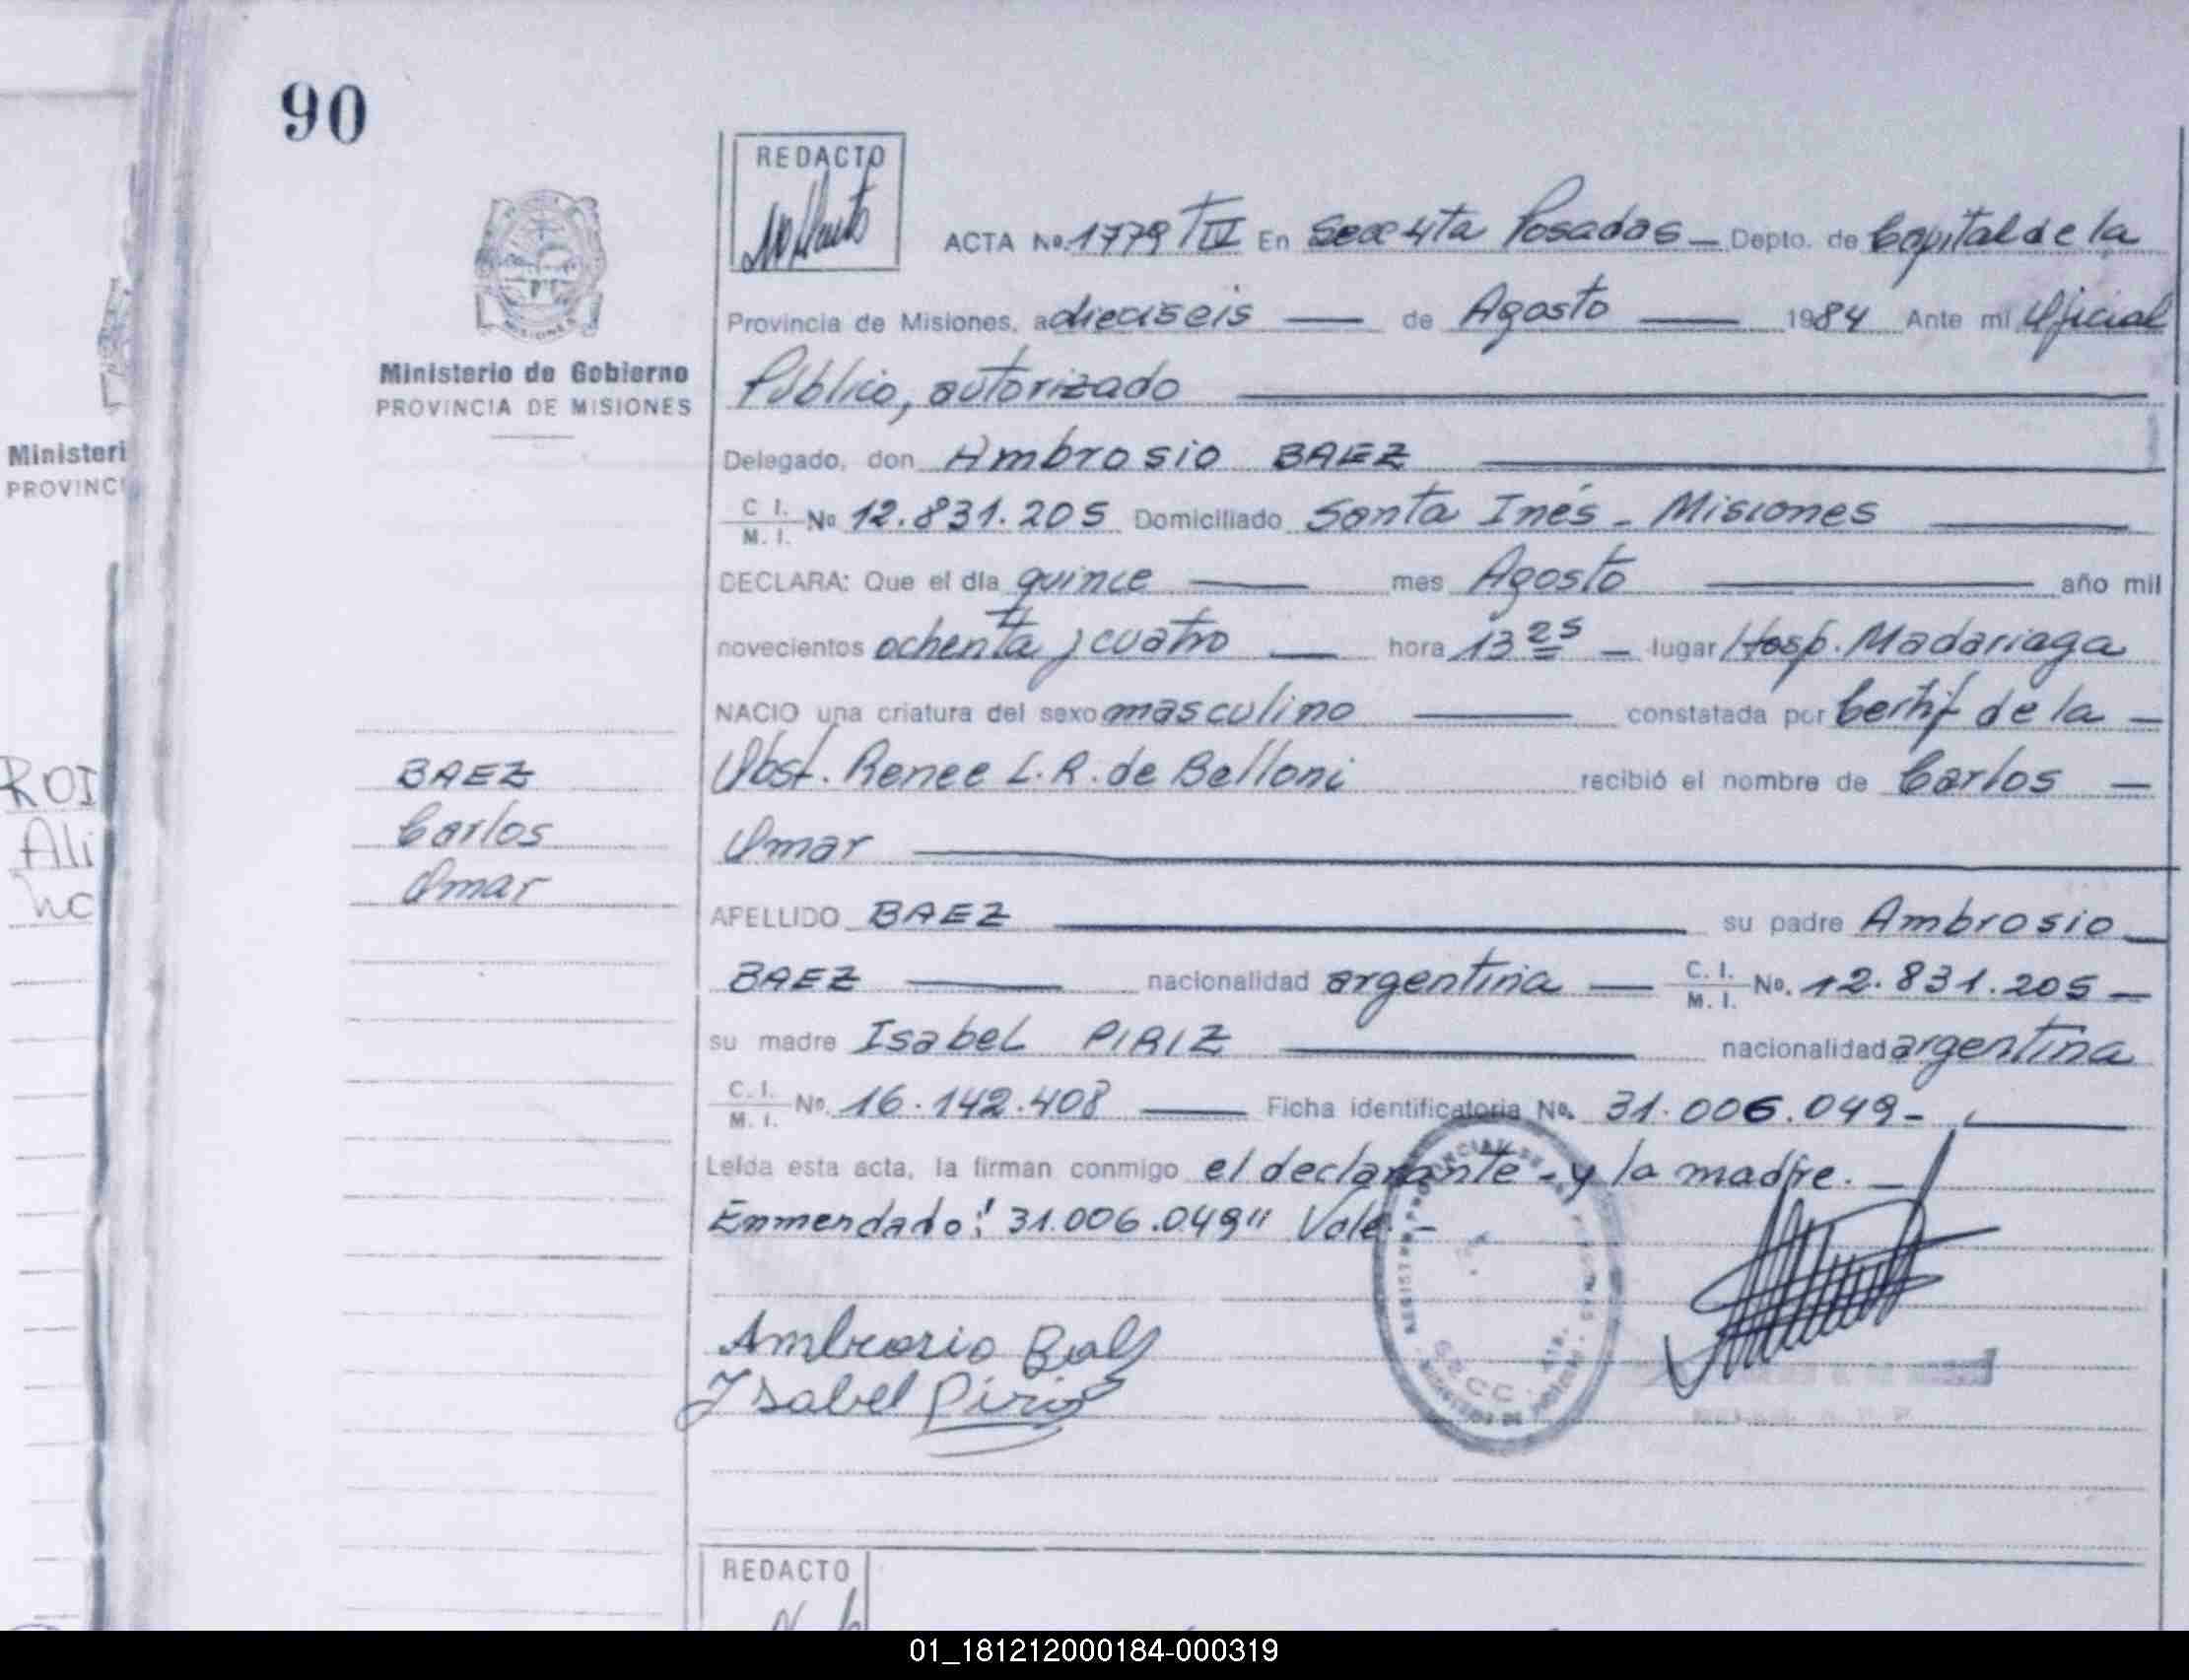 90
REDACTO
ACTA No. 1779 TIV En Secc 4ta Posadas - Depto. de Capital de la
Provincia de Misiones, a dieciseis — de Agosto — 1984 Ante mi Oficial
Público, autorizado
Ministerio de Gobierno
PROVINCIA DE MISIONES
Delegado, don Ambrosio BAEZ
C I. / M. I. No 12.831.205 Domiciliado Santa Inés - Misiones
DECLARA: Que el día quince — mes Agosto — año mil
novecientos ochenta y cuatro — hora 13 25 - lugar Hosp. Madariaga
NACIO una criatura del sexo masculino — constatada por Certif de la -
Obst. Renee L. R. de Belloni recibió el nombre de Carlos -
Omar
BAEZ
Carlos
Omar
APELLIDO BAEZ — su padre Ambrosio -
BAEZ — nacionalidad argentina — C. I. / M. I. No. 12.831.205 -
su madre Isabel PIRIZ — nacionalidad argentina
C. I. / M. I. No. 16.142.408 — Ficha identificatoria No. 31.006.049-
Leída esta acta, la firman conmigo el declarante - y la madre. -
Enmendado: "31.006.049" Vale. -
Ambrosio Baez
Ysabel Piriz
REDACTO
Ministeri
PROVINCI
ROD
Ali
01_181212000184-000319